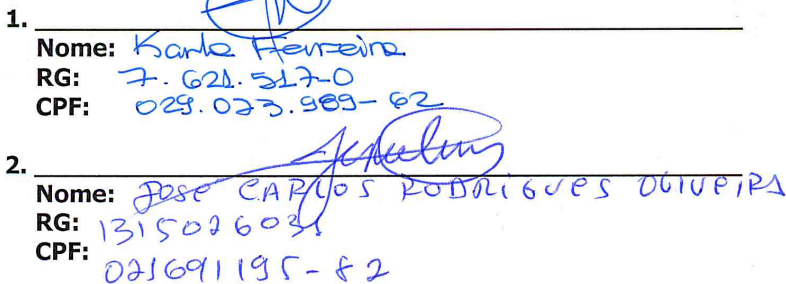 1.
Nome: Karla Ferreira
RG: 7.621.517-0
CPF: 029.073.989-62
2.
Nome: JOSE CARLOS RODRIGUES OLIVEIRA
RG: 1315026031
CPF:
021691195-82